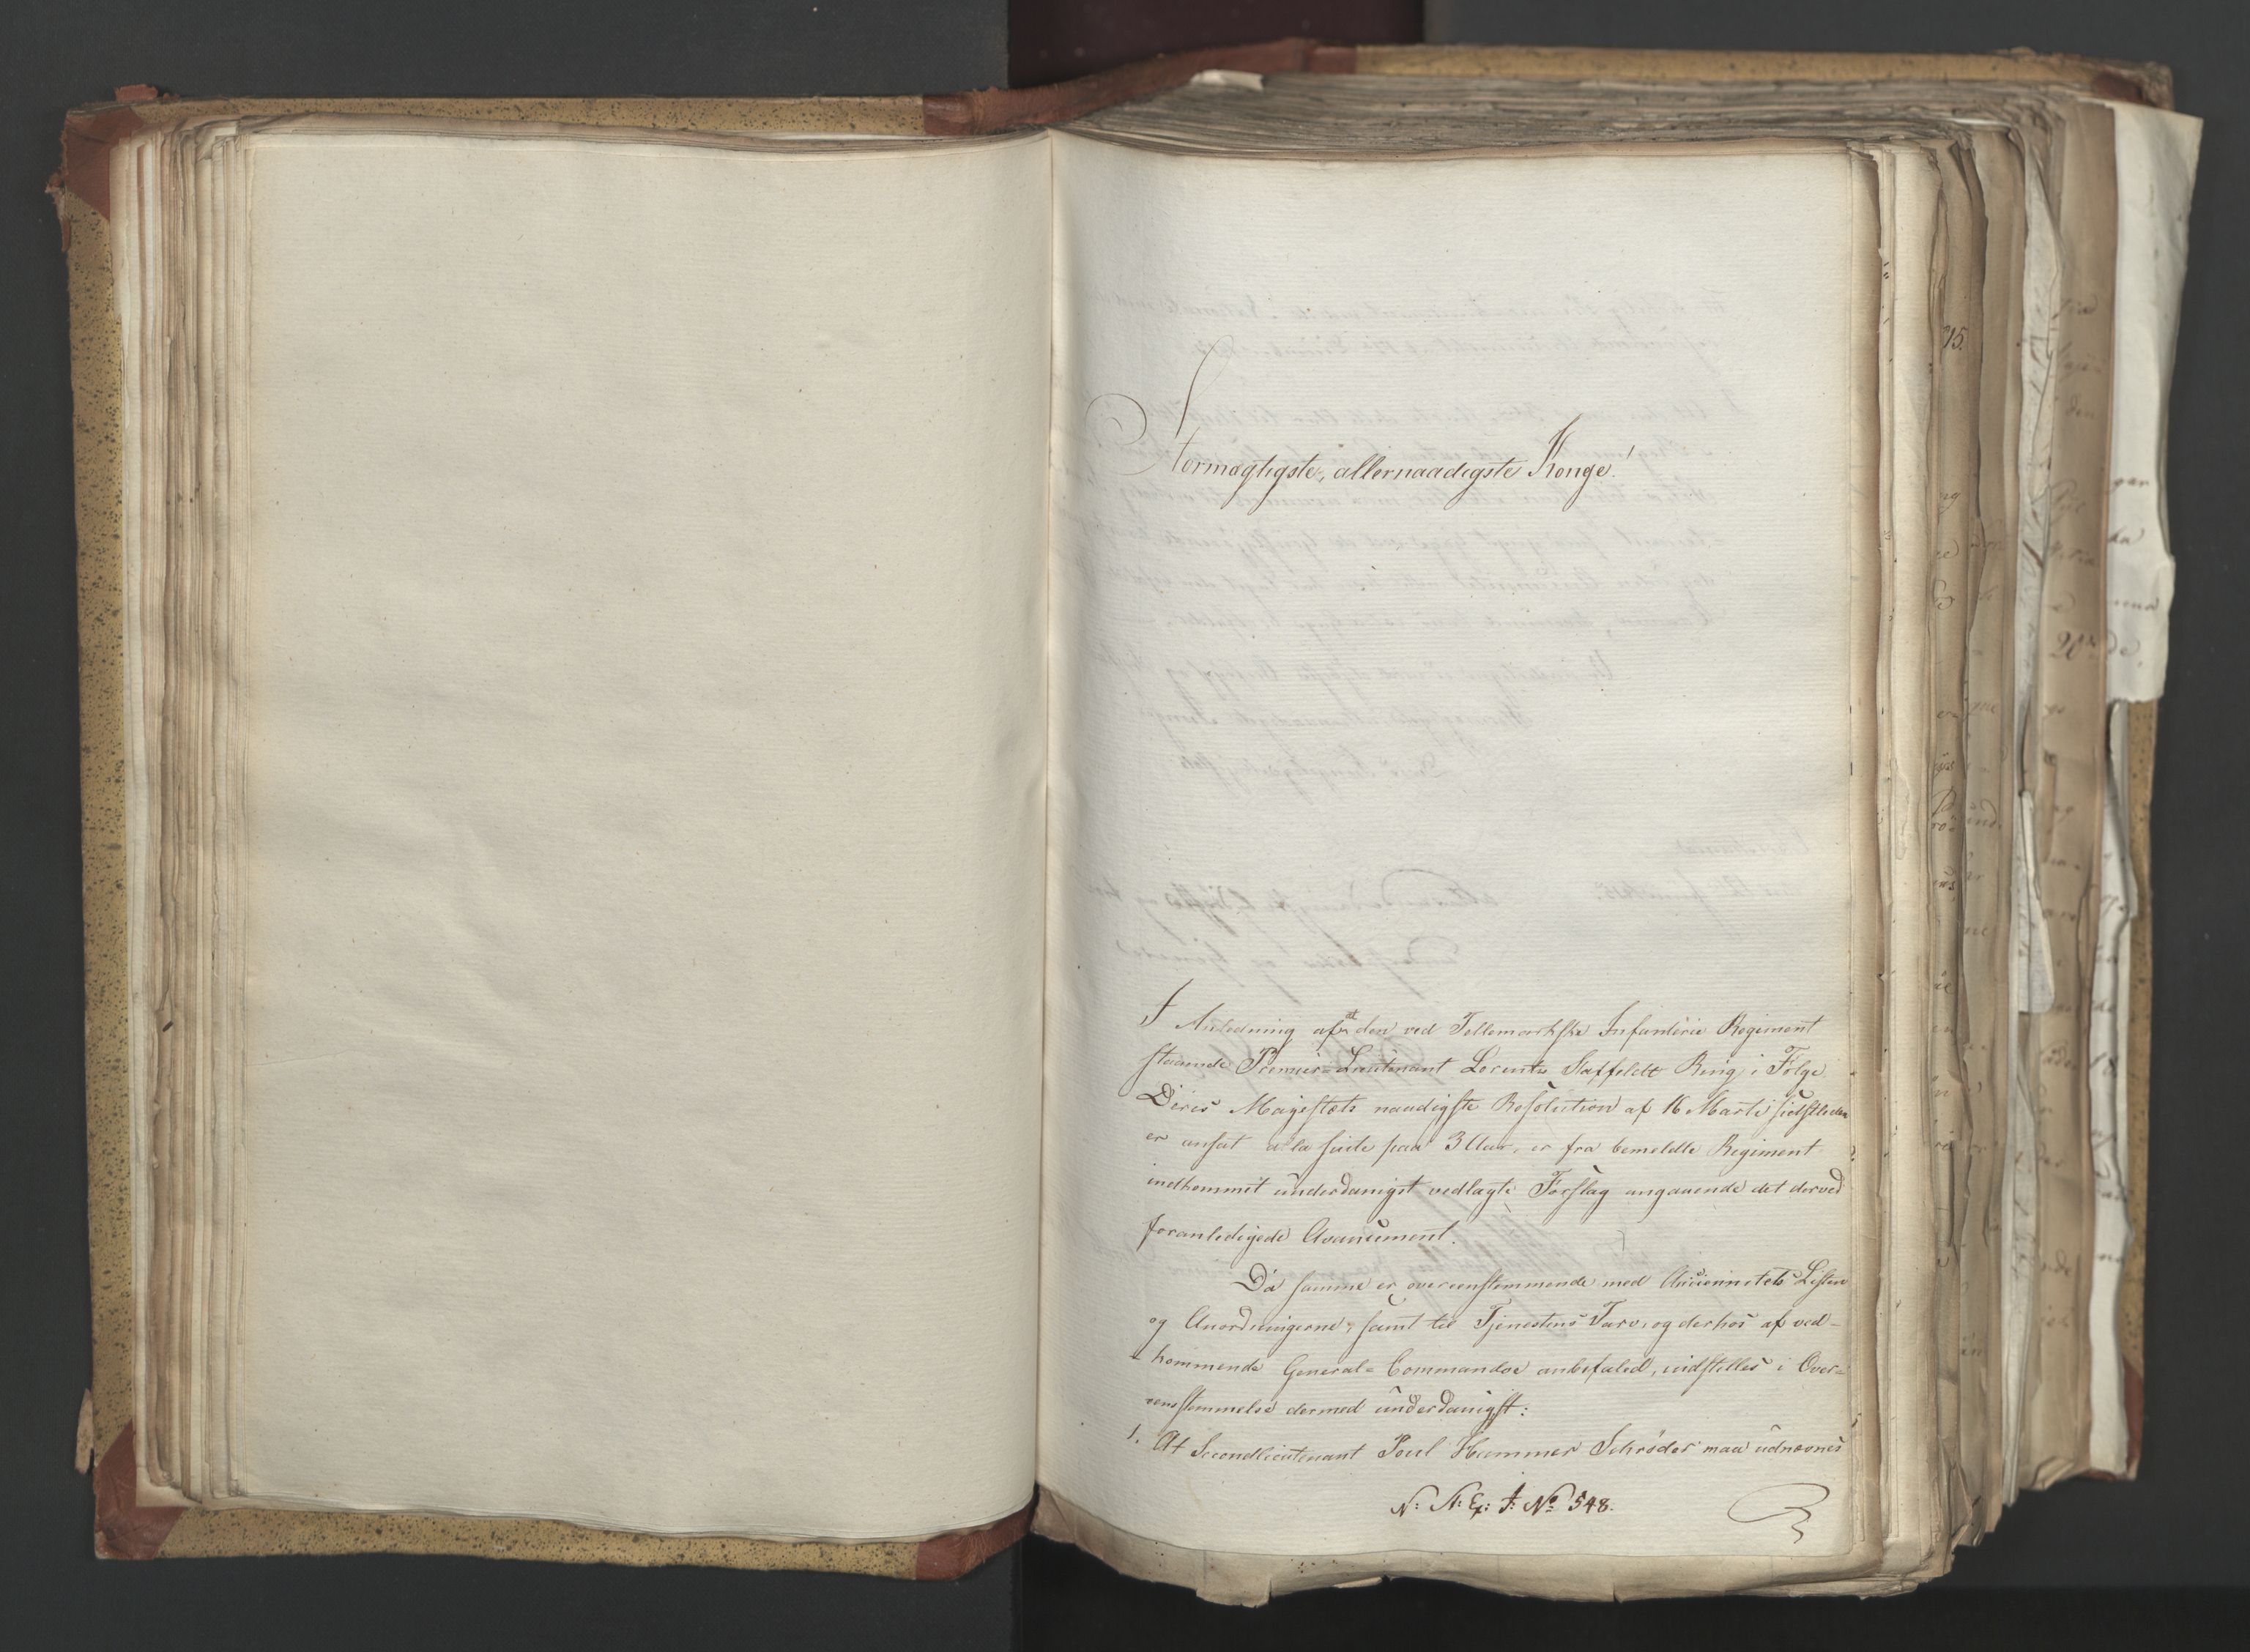 Stormægtigste, allernaadigste Konge!
I Anledning af at den ved Tellemarkske Infanterie Regiment
staaende Premier-Lieutenant Lorentz Staffeldt Ring i Følge
Deres Majestæts naadigste Resolution af 16 Marti sidstleden
er ansat a la suite paa 3 Aar, er fra bemeldte Regiment
indkommet underdanigst vedlagte Forslag angaaende det derved
foranledigede Avancement.
Da samme er overeenstemmende med Anciennetets Listen
og Anordningerne, samt til Tjenestens Tarv, og derhos af ved-
-kommende General-Commandoe anbefaled, indstilles i Over-
eensstemmelse dermed underdanigst:
1. At Secondlieutenant Poul Hammer Schrøder maa udnævnes
N: St: Ex: J: No 548.
15.
20de